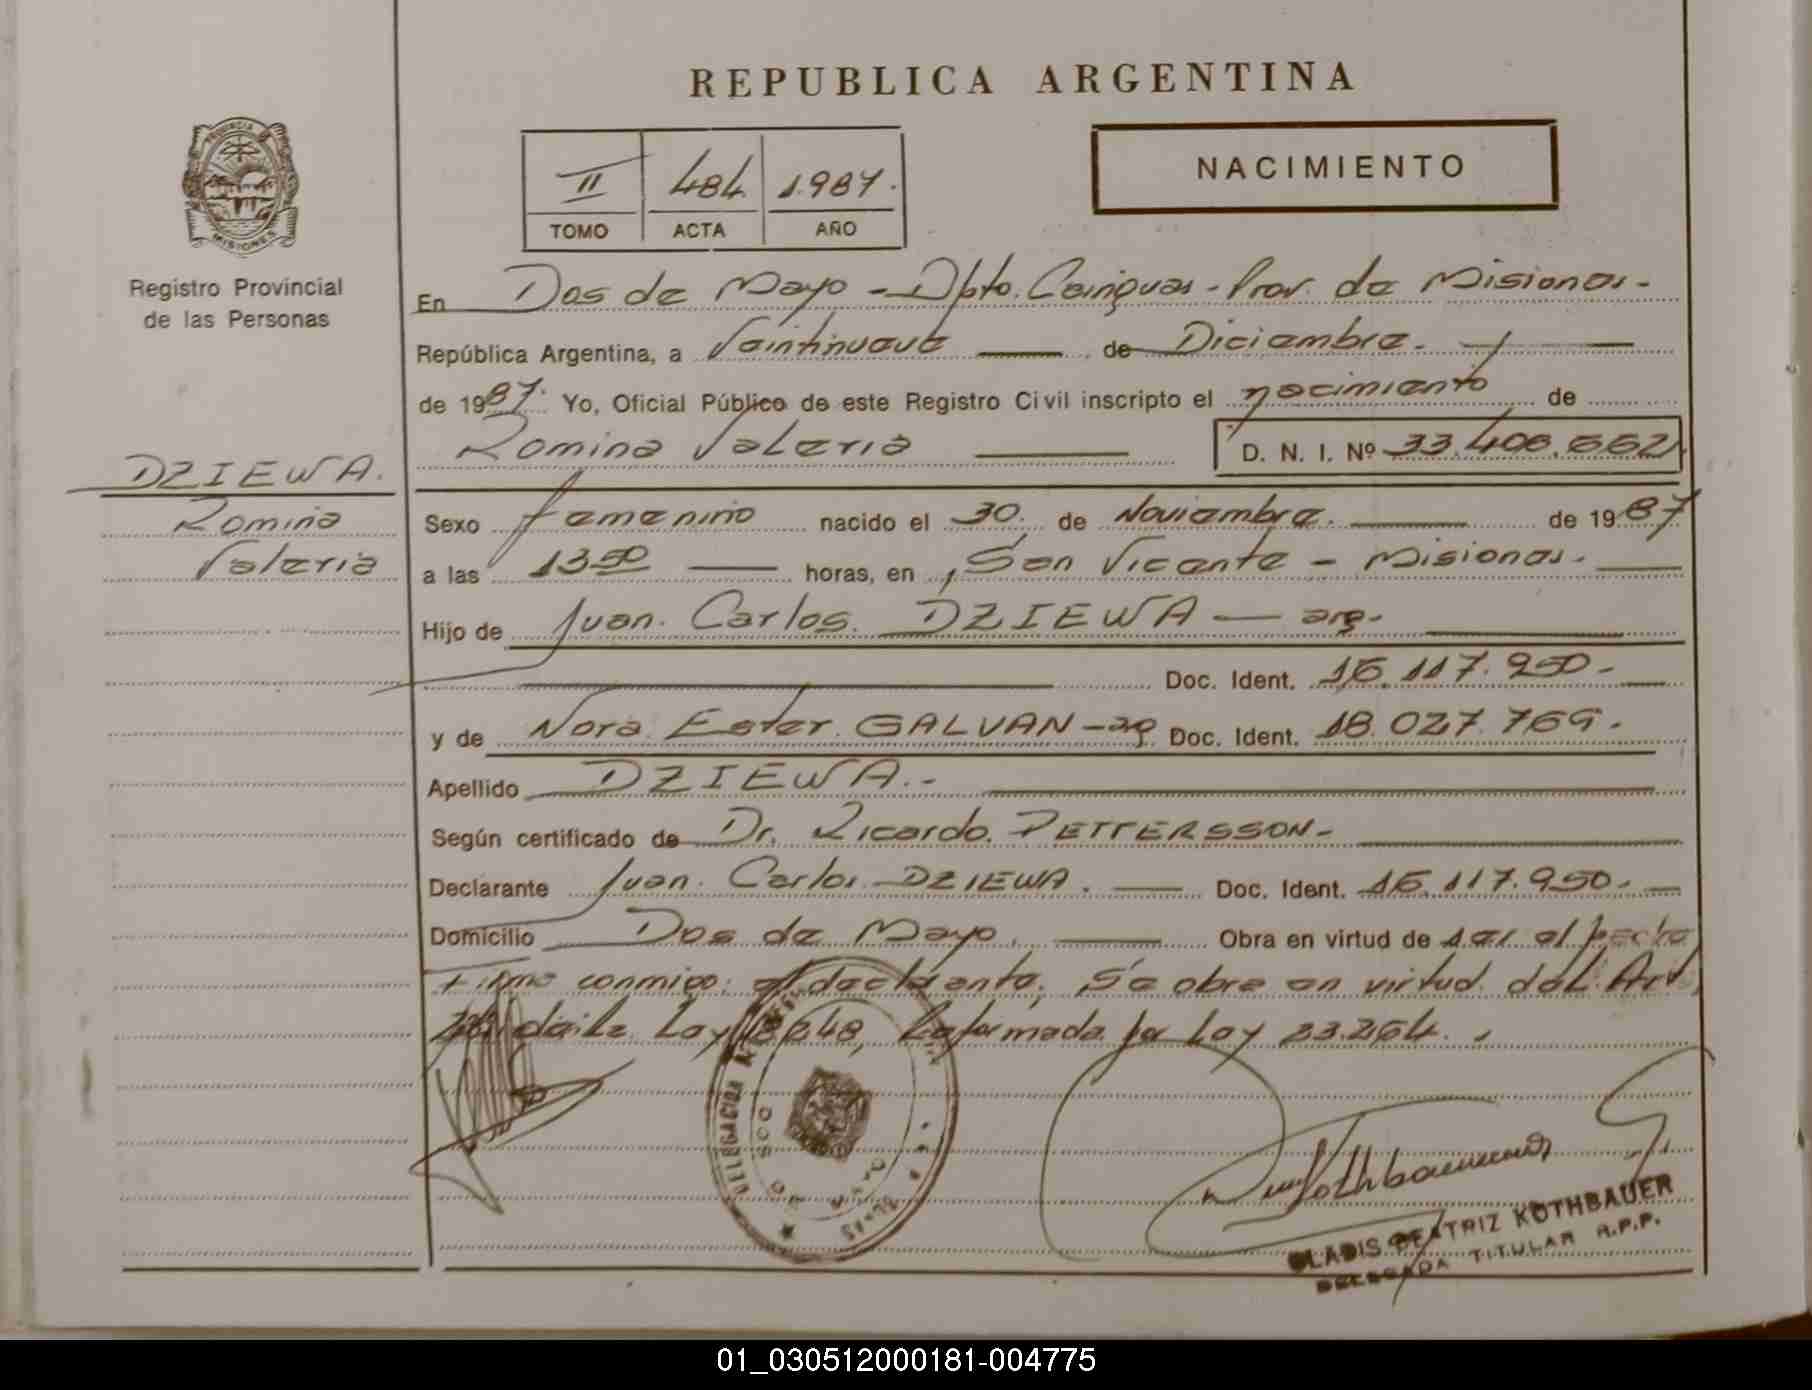 REPUBLICA ARGENTINA
II 484 1.987.
TOMO ACTA AÑO
NACIMIENTO
PROVINCIA
MISIONES
Registro Provincial
de las Personas
DZIEWA.
Romina
Valeria
En Dos de Mayo - Dpto. Cainguas - Prov. de Misiones.-
República Argentina, a Veintinueve de Diciembre.
de 1987. Yo, Oficial Público de este Registro Civil inscripto el nacimiento de
Romina Valeria D. N. I. Nº 33.408.662
Sexo femenino nacido el 30. de Noviembre. de 1987
a las 13 50 horas, en San Vicente - Misiones.
Hijo de Juan. Carlos. DZIEWA — arg.
Doc. Ident. 16.117.950.-
y de Nora Ester. GALVAN - arg Doc. Ident. 18.027.769.
Apellido DZIEWA.-
Según certificado de Dr. Ricardo. PETTERSSON-
Declarante Juan. Carlos. DZIEWA. Doc. Ident. 16.117.950.
Domicilio Dos de Mayo. Obra en virtud de ser el padre
Firma conmigo: el declarante. Se obra en virtud del: Art.
de la Ley 18648, Reformada por Ley 23.264.
DELEGACION
DOS
MAYO
GLADIS BEATRIZ KOTHBAUER
DELEGADA TITULAR R.P.P.
01_030512000181-004775